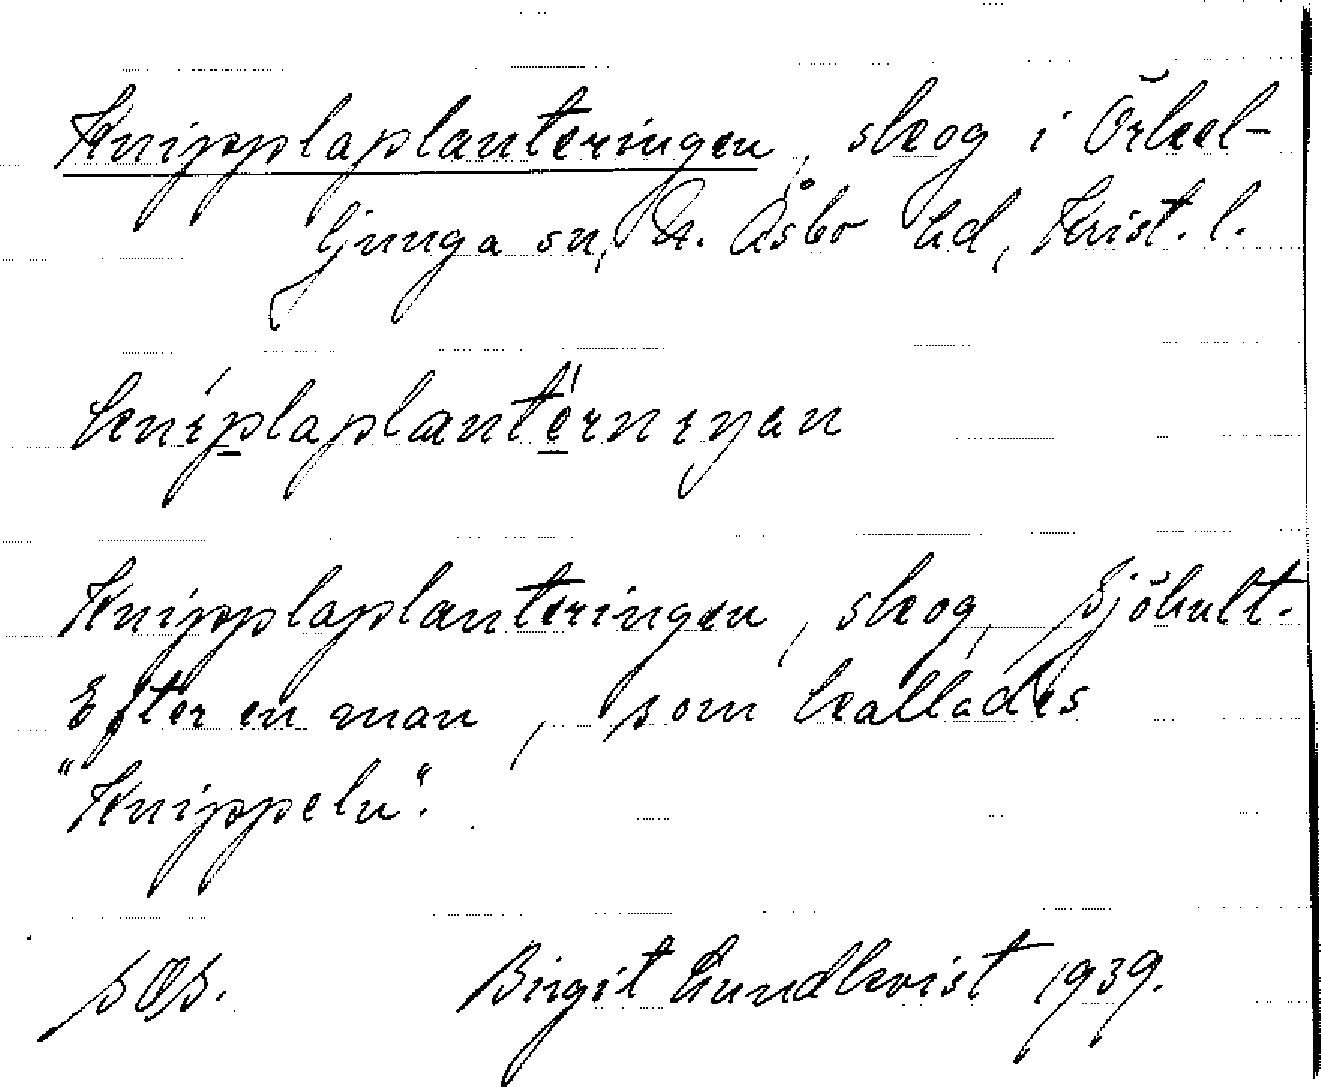 Knipplaplanteringen, skog i Örkel-
ljunga sn, N. Åsbo hd, Krist. l.
knípḷaplantérnıŋan
Knipplaplanteringen, skog, Sjöhult.
Efter en man, som kallades
"Knippeln".
Birgit Lundkvist 1939.